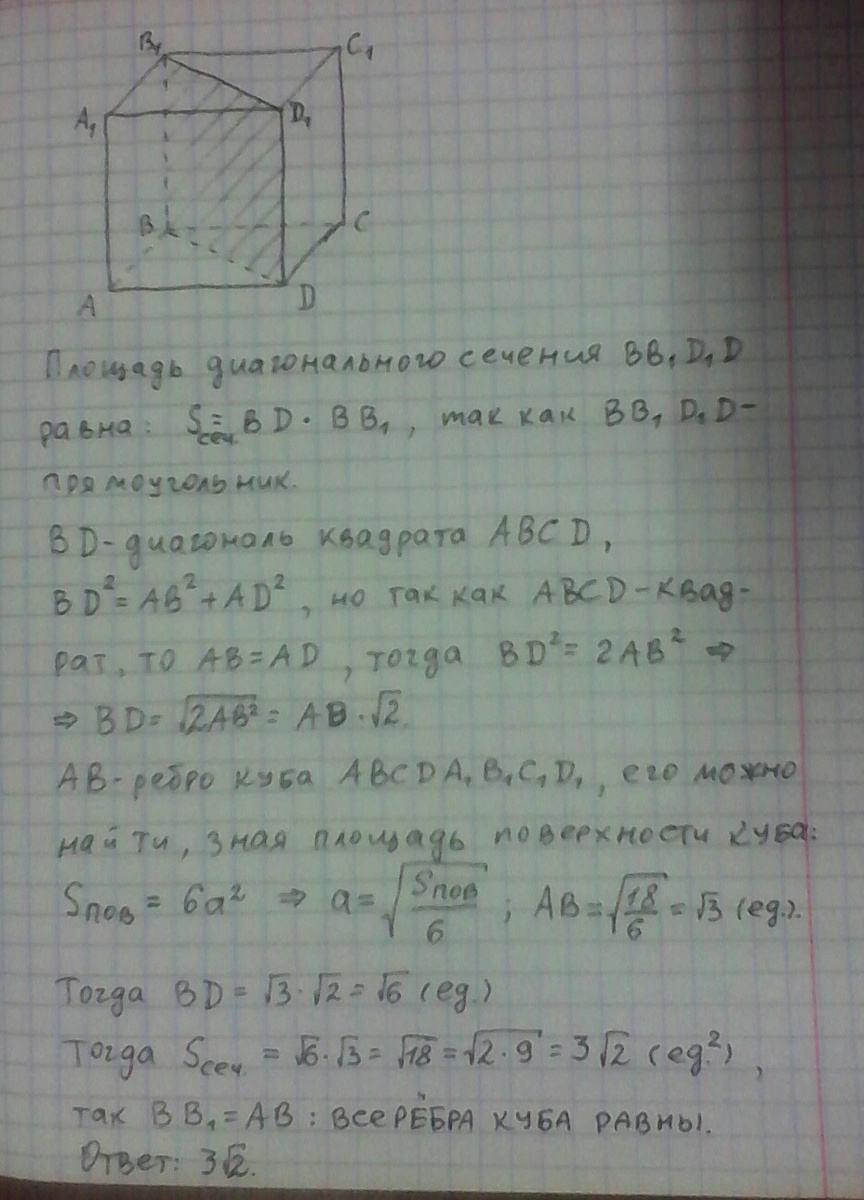 B₁ C₁
A₁ D₁
B C
A D
Площадь диагонального сечения BB₁D₁D
равна: Sсеч = BD · BB₁, так как BB₁D₁D-
прямоугольник.
BD-диагональ квадрата ABCD,
BD² = AB² + AD², но так как ABCD-квад-
рат, то AB = AD, тогда BD² = 2AB² ⇒
⇒ BD = √2AB² = AB · √2.
AB-ребро куба ABCDA₁B₁C₁D₁, его можно
найти, зная площадь поверхности куба:
Sпов = 6a² ⇒ a = √(Sпов/6); AB = √(18/6) = √3 (ед.).
Тогда BD = √3 · √2 = √6 (ед.)
Тогда Sсеч = √6 · √3 = √18 = √2·9 = 3√2 (ед.²),
так BB₁ = AB: ВСЕ РЁБРА КУБА РАВНЫ.
Ответ: 3√2.